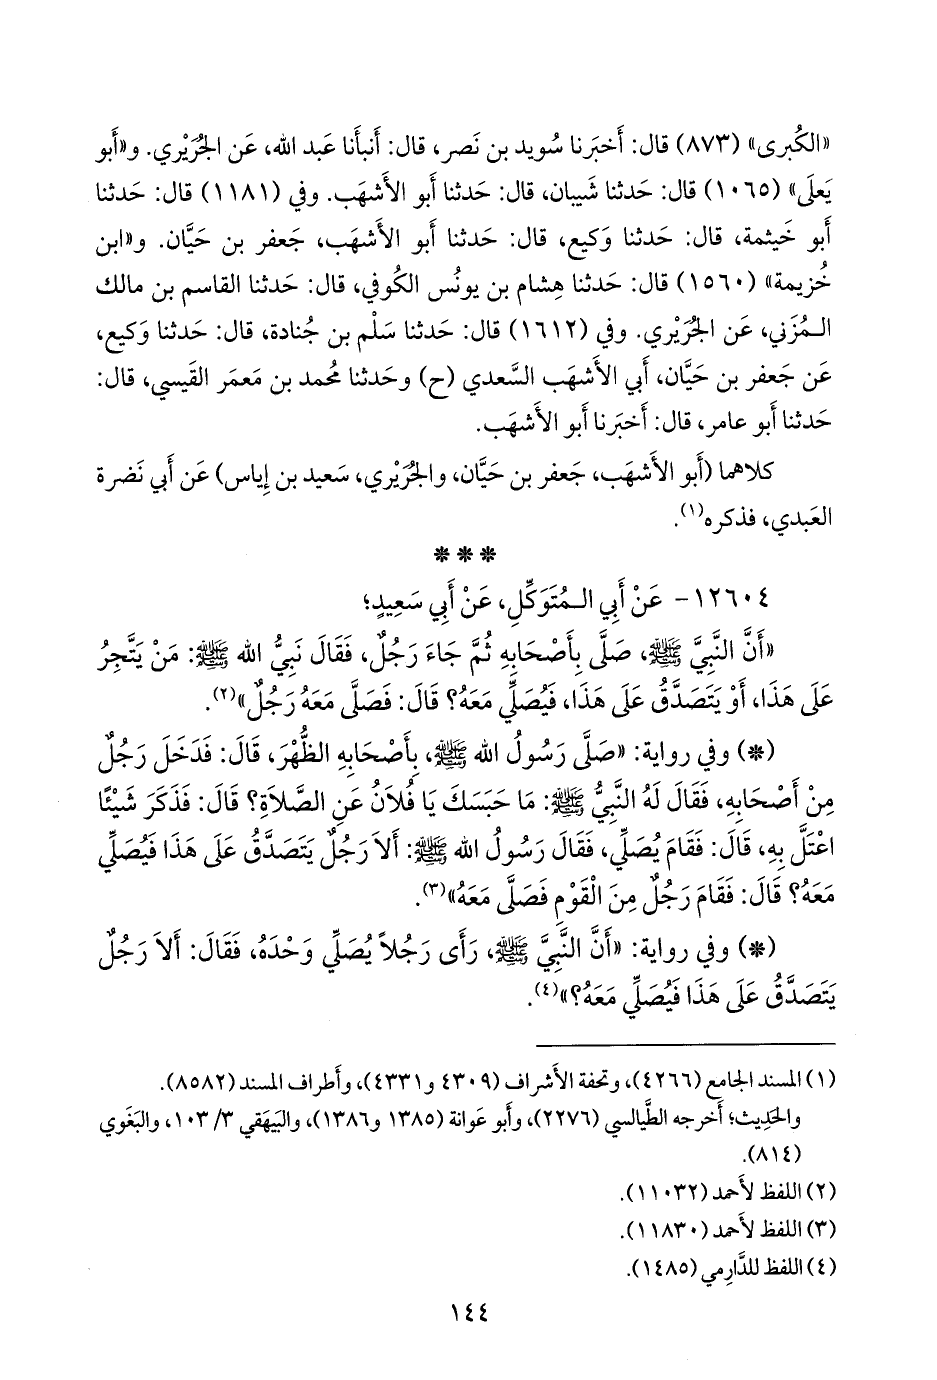 «الكُبرى» (٨٧٣) قال: أَخبَرنا سُويد بن نَصر، قال: أَنبأَنا عَبد الله، عَن الجُرَيْري. و«أَبو
يَعلَى» (١٠٦٥) قال: حَدثنا شَيبان، قال: حَدثنا أَبو الأَشهَب. وفي (١١٨١) قال: حَدثنا
أَبو خَيثمة، قال: حَدثنا وَكيع، قال: حَدثنا أَبو الأَشهَب، جَعفر بن حَيَّان. و«ابن
خُزيمة» (١٥٦٠) قال: حَدثنا هِشام بن يونُس الكُوفي، قال: حَدثنا القاسم بن مالك
الـمُزَني، عَن الجُرَيْري. وفي (١٦١٢) قال: حَدثنا سَلْم بن جُنادة، قال: حَدثنا وَكيع،
عَن جَعفر بن حَيَّان، أَبي الأَشهَب السَّعدي (ح) وحَدثنا مُحمد بن مَعمَر القَيسي، قال:
حَدثنا أَبو عامر، قال: أَخبَرنا أَبو الأَشهَب.
كلاهما (أَبو الأَشهَب، جَعفر بن حَيَّان، والجُرَيْري، سَعيد بن إِياس) عَن أَبي نَضرة
العَبدي، فذكره(١).
* * *
١٢٦٠٤- عَنْ أَبِي الـمُتَوَكِّلِ، عَنْ أَبِي سَعِيدٍ؛
«أَنَّ النَّبِيَّ ﷺ، صَلَّى بِأَصْحَابِهِ ثُمَّ جَاءَ رَجُلٌ، فَقَالَ نَبِيُّ الله ﷺ: مَنْ يَتَّجِرُ
عَلَى هَذَا، أَوْ يَتَصَدَّقُ عَلَى هَذَا، فَيُصَلِّي مَعَهُ؟ قَالَ: فَصَلَّى مَعَهُ رَجُلٌ»(٢).
(*) وفي رواية: «صَلَّى رَسُولُ الله ﷺ، بِأَصْحَابِهِ الظُّهْرَ، قَالَ: فَدَخَلَ رَجُلٌ
مِنْ أَصْحَابِهِ، فَقَالَ لَهُ النَّبِيُّ ﷺ: مَا حَبَسَكَ يَا فُلاَنُ عَنِ الصَّلاَةِ؟ قَالَ: فَذَكَرَ شَيْئًا
اعْتَلَّ بِهِ، قَالَ: فَقَامَ يُصَلِّي، فَقَالَ رَسُولُ الله ﷺ: أَلاَ رَجُلٌ يَتَصَدَّقُ عَلَى هَذَا فَيُصَلِّي
مَعَهُ؟ قَالَ: فَقَامَ رَجُلٌ مِنَ الْقَوْمِ فَصَلَّى مَعَهُ»(٣).
(*) وفي رواية: «أَنَّ النَّبِيَّ ﷺ، رَأَى رَجُلاً يُصَلِّي وَحْدَهُ، فَقَالَ: أَلاَ رَجُلٌ
يَتَصَدَّقُ عَلَى هَذَا فَيُصَلِّيَ مَعَهُ؟»(٤).
(١) المسند الجامع (٤٢٦٦)، وتحفة الأَشراف (٤٣٠٩ و٤٣٣١)، وأَطراف المسند (٨٥٨٢).
والحَدِيث؛ أَخرجه الطَّيالسي (٢٢٧٦)، وأَبو عَوانة (١٣٨٥ و١٣٨٦)، والبَيهَقي ٣/ ١٠٣، والبَغَوي
(٨١٤).
(٢) اللفظ لأَحمد (١١٠٣٢).
(٣) اللفظ لأَحمد (١١٨٣٠).
(٤) اللفظ للدَّارِمي (١٤٨٥).
١٤٤